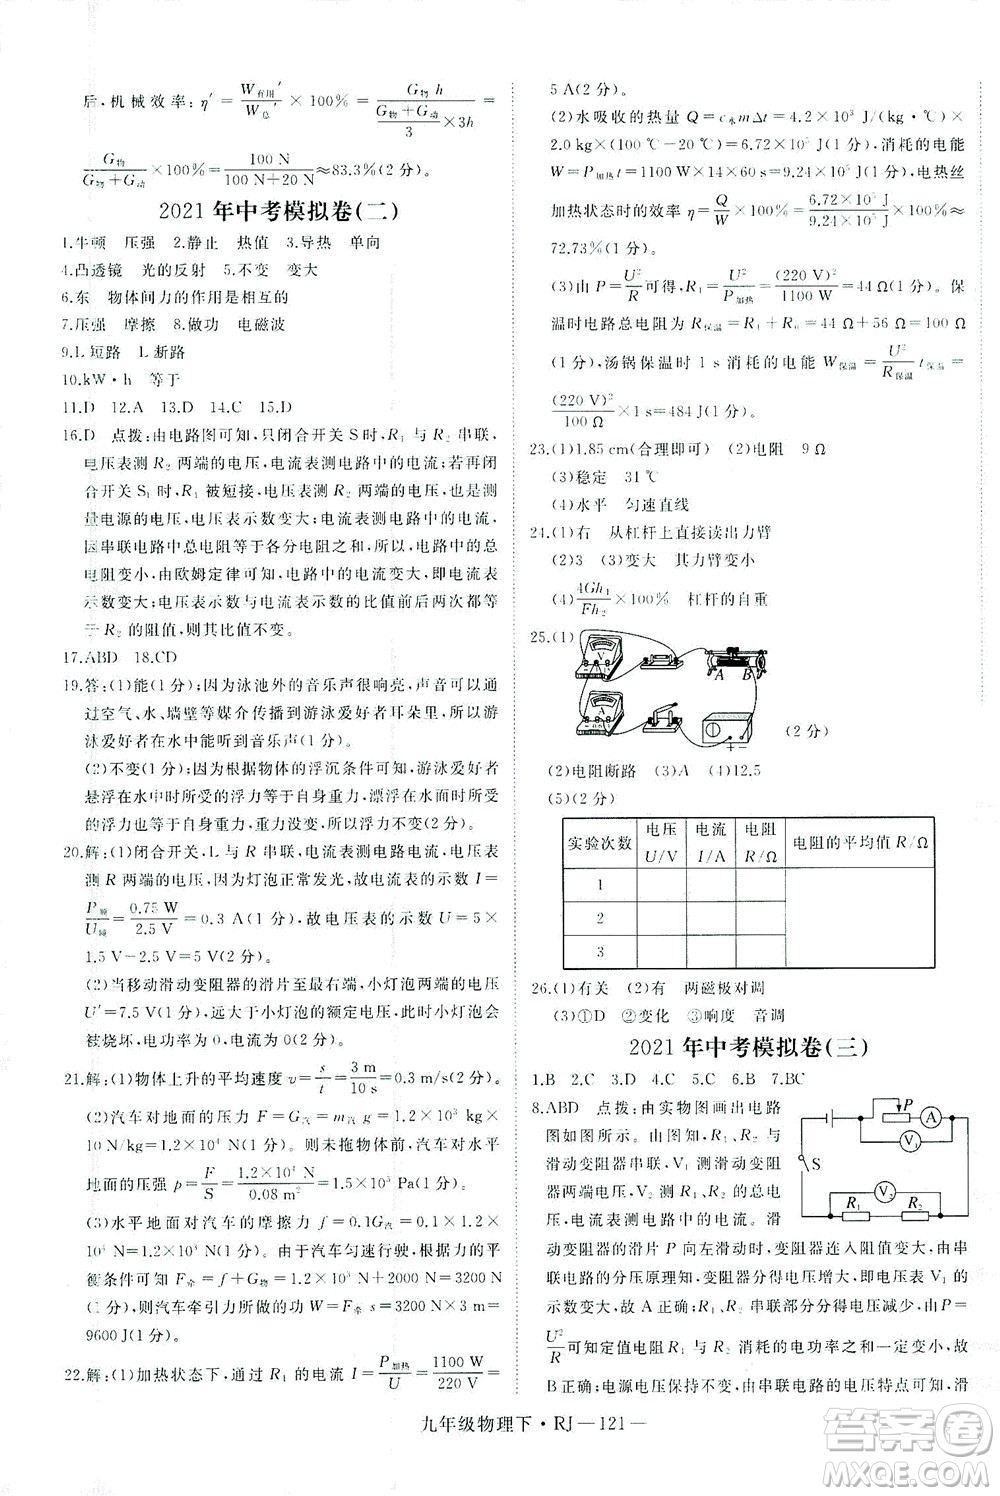 后,机械效率:η′ = W有用′/W总′ × 100% = G物 h/((G物+G动)/3 × 3h) × 100% =
G物/(G物+G动) = 100 N/(100 N+20 N) ≈83.3%(2分)。
2021 年中考模拟卷(二)
1.牛顿 压强 2.静止 热值 3.导热 单向
4.凸透镜 光的反射 5.不变 变大
6.东 物体间力的作用是相互的
7.压强 摩擦 8.做功 电磁波
9.L 短路 L 断路
10.kW·h 等于
11.D 12.A 13.D 14.C 15.D
16.D 点拨:由电路图可知,只闭合开关S时,R₁ 与 R₂ 串联,
电压表测 R₂ 两端的电压,电流表测电路中的电流;若再闭
合开关 S₁ 时,R₁ 被短接,电压表测 R₂ 两端的电压,也是测
量电源的电压,电压表示数变大;电流表测电路中的电流,
因串联电路中总电阻等于各分电阻之和,所以,电路中的总
电阻变小,由欧姆定律可知,电路中的电流变大,即电流表
示数变大,因电压表示数与电流表示数的比值前后两次都等
于 R₂ 的阻值,所以其比值不变。
17.ABD 18.CD
19.答:(1)能(1分);因为泳池外的音乐声很响亮,声音可以通
过空气、水、墙壁等媒介传播到游泳爱好者耳朵里,所以游
泳爱好者在水中能听到音乐声(1分)。
(2)不变(1分);因为根据物体的浮沉条件可知,游泳爱好者
悬浮在水中时所受的浮力等于自身重力,漂浮在水面时所受
的浮力也等于自身重力,重力没变,所以浮力不变(1分)。
20.解:(1)闭合开关,L 与 R 串联,电流表测电路电流,电压表
测 R 两端的电压,因为灯泡正常发光,故电流表的示数 I =
P额/U额 = 0.75 W/2.5 V =0.3 A(1分),故电压表的示数 U =5×
1.5 V−2.5 V=5 V(2分)。
(2)当移动滑动变阻器的滑片至最右端时,小灯泡两端的电压
U′=7.5 V(1分),远大于小灯泡的额定电压,小灯泡会
被烧坏,电功率为 0,电流为 0(2分)。
21.解:(1)物体上升的平均速度 v = s/t = 3 m/10 s =0.3 m/s(1分)。
(2)汽车对地面的压力 F = G汽 = m汽 g = 1.2×10³ kg×10
N/kg=1.2×10⁴ N(1分)。则未拖物体前,汽车对水平
地面的压强 p = F/S = 1.2×10⁴ N/0.08 m² =1.5×10⁵ Pa(1分)。
(3)水平地面对汽车的摩擦力 f = 0.1G汽 = 0.1×1.2×
10⁴ N = 1 200 N(1分)。由于汽车匀速行驶,根据受力平
衡条件可知 F牵 = f+G物 = 1 200 N+2 000 N=3200 N
(1分),则汽车牵引力所做的功 W = F牵 s = 3200 N×3 m=
9600 J(1分)。
22.解:(1)加热状态下,通过 R₁ 的电流 I = P加热/U = 1100 W/220 V =
5 A(2分)。
(2)水吸收的热量 Q = c水 m Δt = 4.2×10³ J/(kg·℃)×
2.0 kg×(100℃−20℃)=6.72×10⁵ J(1分),消耗的电能
W = P加热 t = 1100 W×14×60 s =9.24×10⁵ J(1分),电热丝
加热状态时的效率 η = Q/W × 100% = 6.72×10⁵ J/9.24×10⁵ J × 100% ≈
72.73%(1分)。
(3)由 P = U²/R 可得,R₁ = U²/P加热 = (220 V)²/1100 W =44 Ω(1分)。保
温时电路总电阻为 R保温 = R₁ + R₀ = 44 Ω+56 Ω=100 Ω
(1分),汤锅保温时 1 s 消耗的电能 W保温 = U²/R保温 t保温 =
(220 V)²/100 Ω ×1 s=484 J(1分)。
23.(1)1.85 cm(合理即可) (2)电阻 9 Ω
(3)稳定 31 ℃
(4)水平 匀速直线
24.(1)右 从杠杆上直接读出力臂
(2)3 (3)变大 其力臂变小
(4) 4Gh₁/Fh₂ ×100% 杠杆的自重
25.(1)
V A B A − + (2分)
(2)电阻断路 (3)A (4)12.5
(5)(2分)
实验次数 电压U/V 电流I/A 电阻R/Ω 电阻的平均值 R/Ω
1
2
3
26.(1)有关 (2)有 两磁极对调
(3)①D ②变化 ③响度 音调
2021 年中考模拟卷(三)
1.B 2.C 3.D 4.C 5.C 6.B 7.BC
8.ABD 点拨:由实物图画出电路
图如图所示。由图知,R₁、R₂ 与
滑动变阻器串联,V₁ 测滑动变阻
器两端电压,V₂ 测 R₁、R₂ 两端电
压,电流表测电路中的电流。滑
P A V₁ S V₂ R₁ R₂
动变阻器的滑片 P 向左滑动时,变阻器连入阻值变大,由串
联电路的分压原理知,变阻器分得电压增大,即电压表 V₁
的示数变大,故 A 正确;R₁、R₂ 串联部分分得电压减少,由 P =
U²/R 可知定值电阻 R₁ 与 R₂ 消耗的电功率之和一定变小,故
B正确;电源电压保持不变,由串联电路的电压规律知,滑
九年级物理下·RJ—121—
答案圈
MXQE.COM